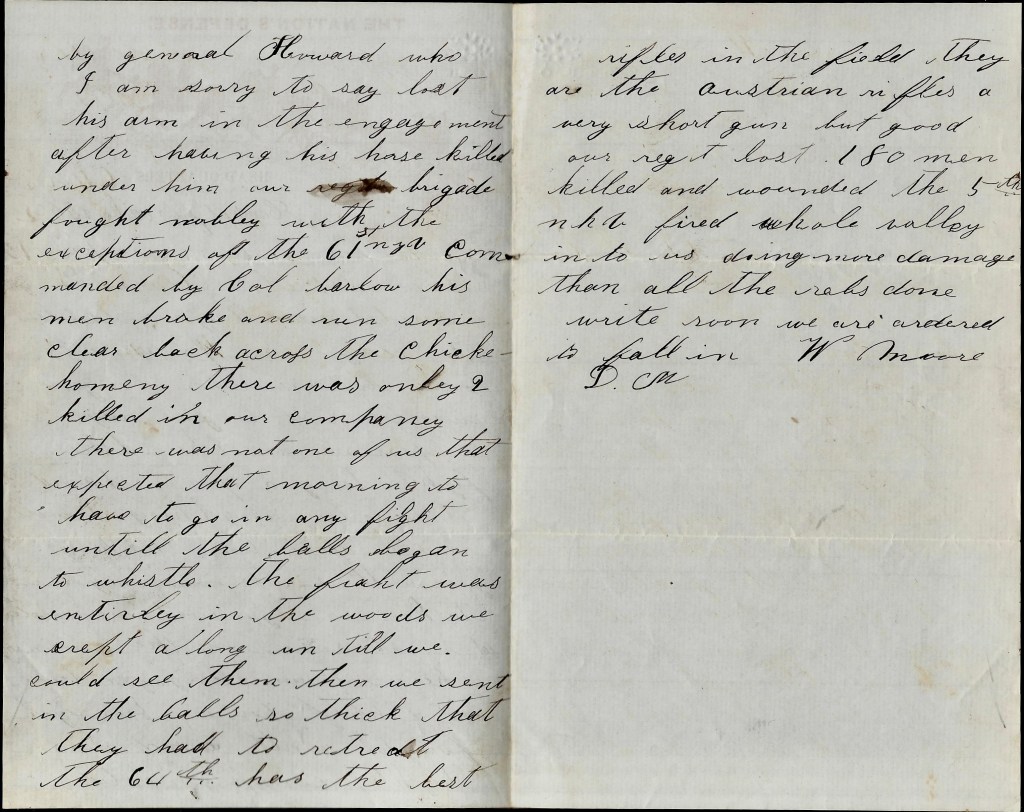 by general Howard who
I am sorry to say lost
his arm in the engagement
after having his hose killed
under him our brigade
fought nobley with the
exceptions off the 61st nyv Com
manded by Col barlow his
men broke and run some
clear back across the Chicke-
homeny there was onley 2
killed in our companey
there was not one of us that
expected that morning to
have to go in any fight
untill the balls began
to whistle. the fight was
entirley in the woods we
crept a long un till we.
could see them. then we sent
in the balls so thick that
they had to retreat
the 64th has the best
rifles in the field they
are the Austrian rifles a
very short gun but good
our regt lost 180 men
killed and wounded the 5th
nhv fired whole valley
in to us doing more damage
than all the rebs done
write soon we are ordered
to fall in W Moore
D. M